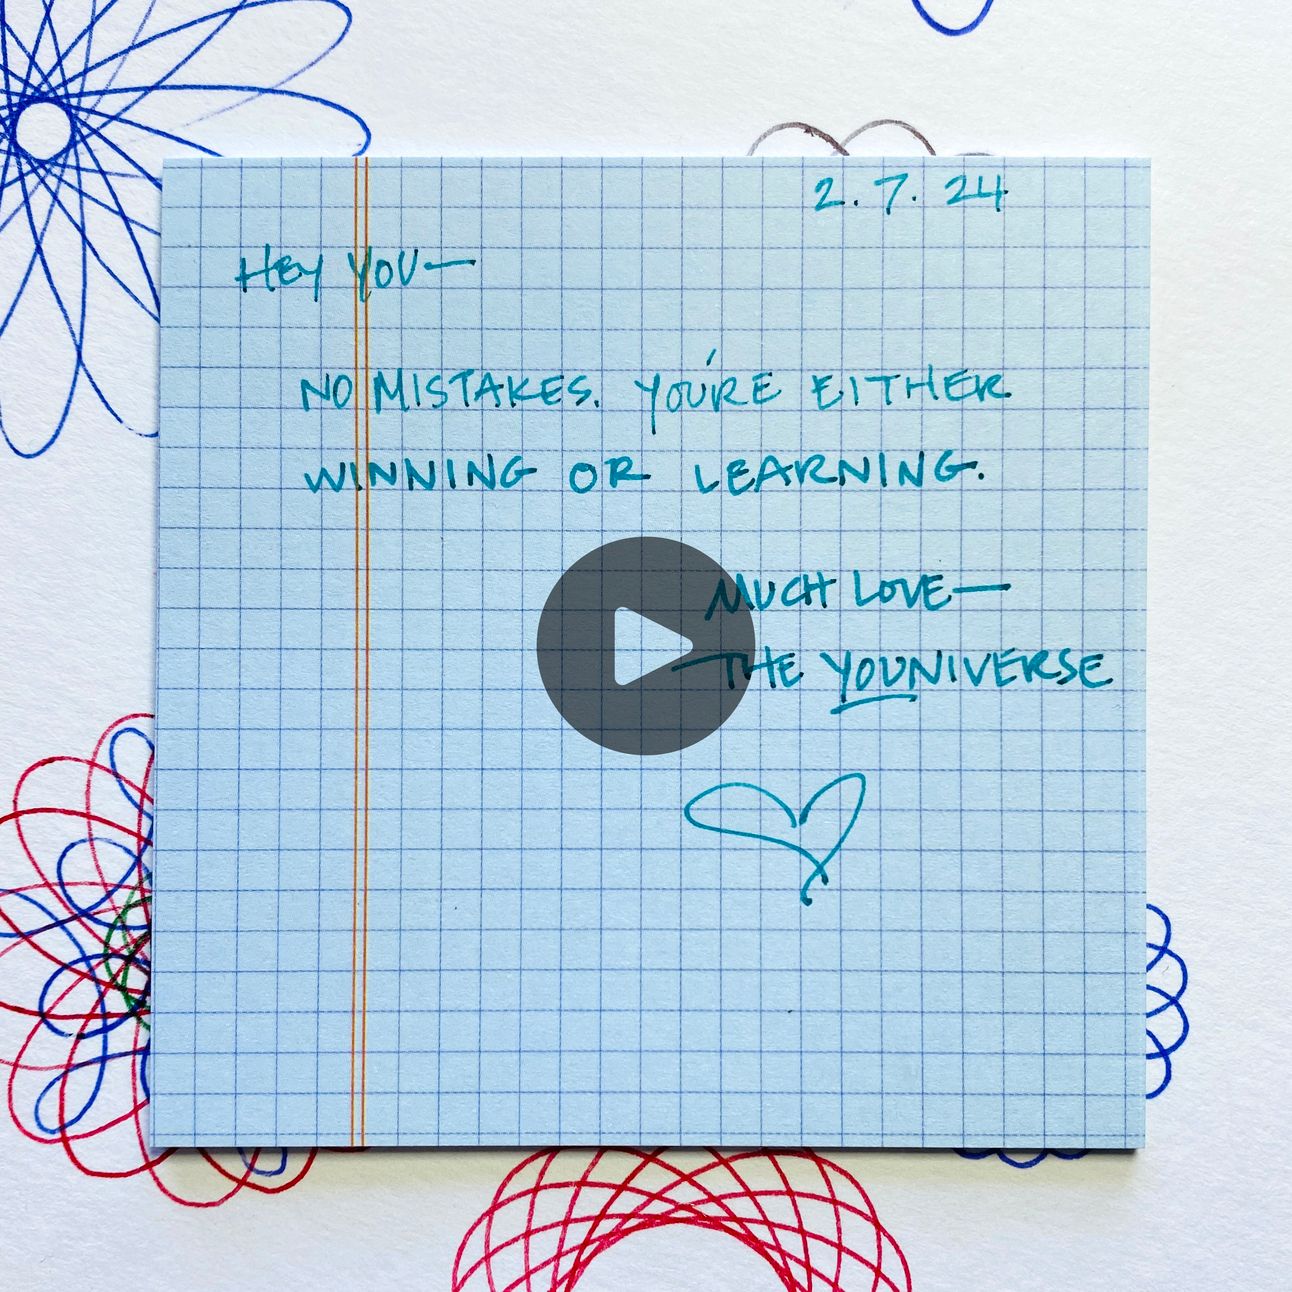 2. 7. 24
HEY YOU—
NO MISTAKES. YOU'RE EITHER
WINNING OR LEARNING.
MUCH LOVE—
THE YOUNIVERSE